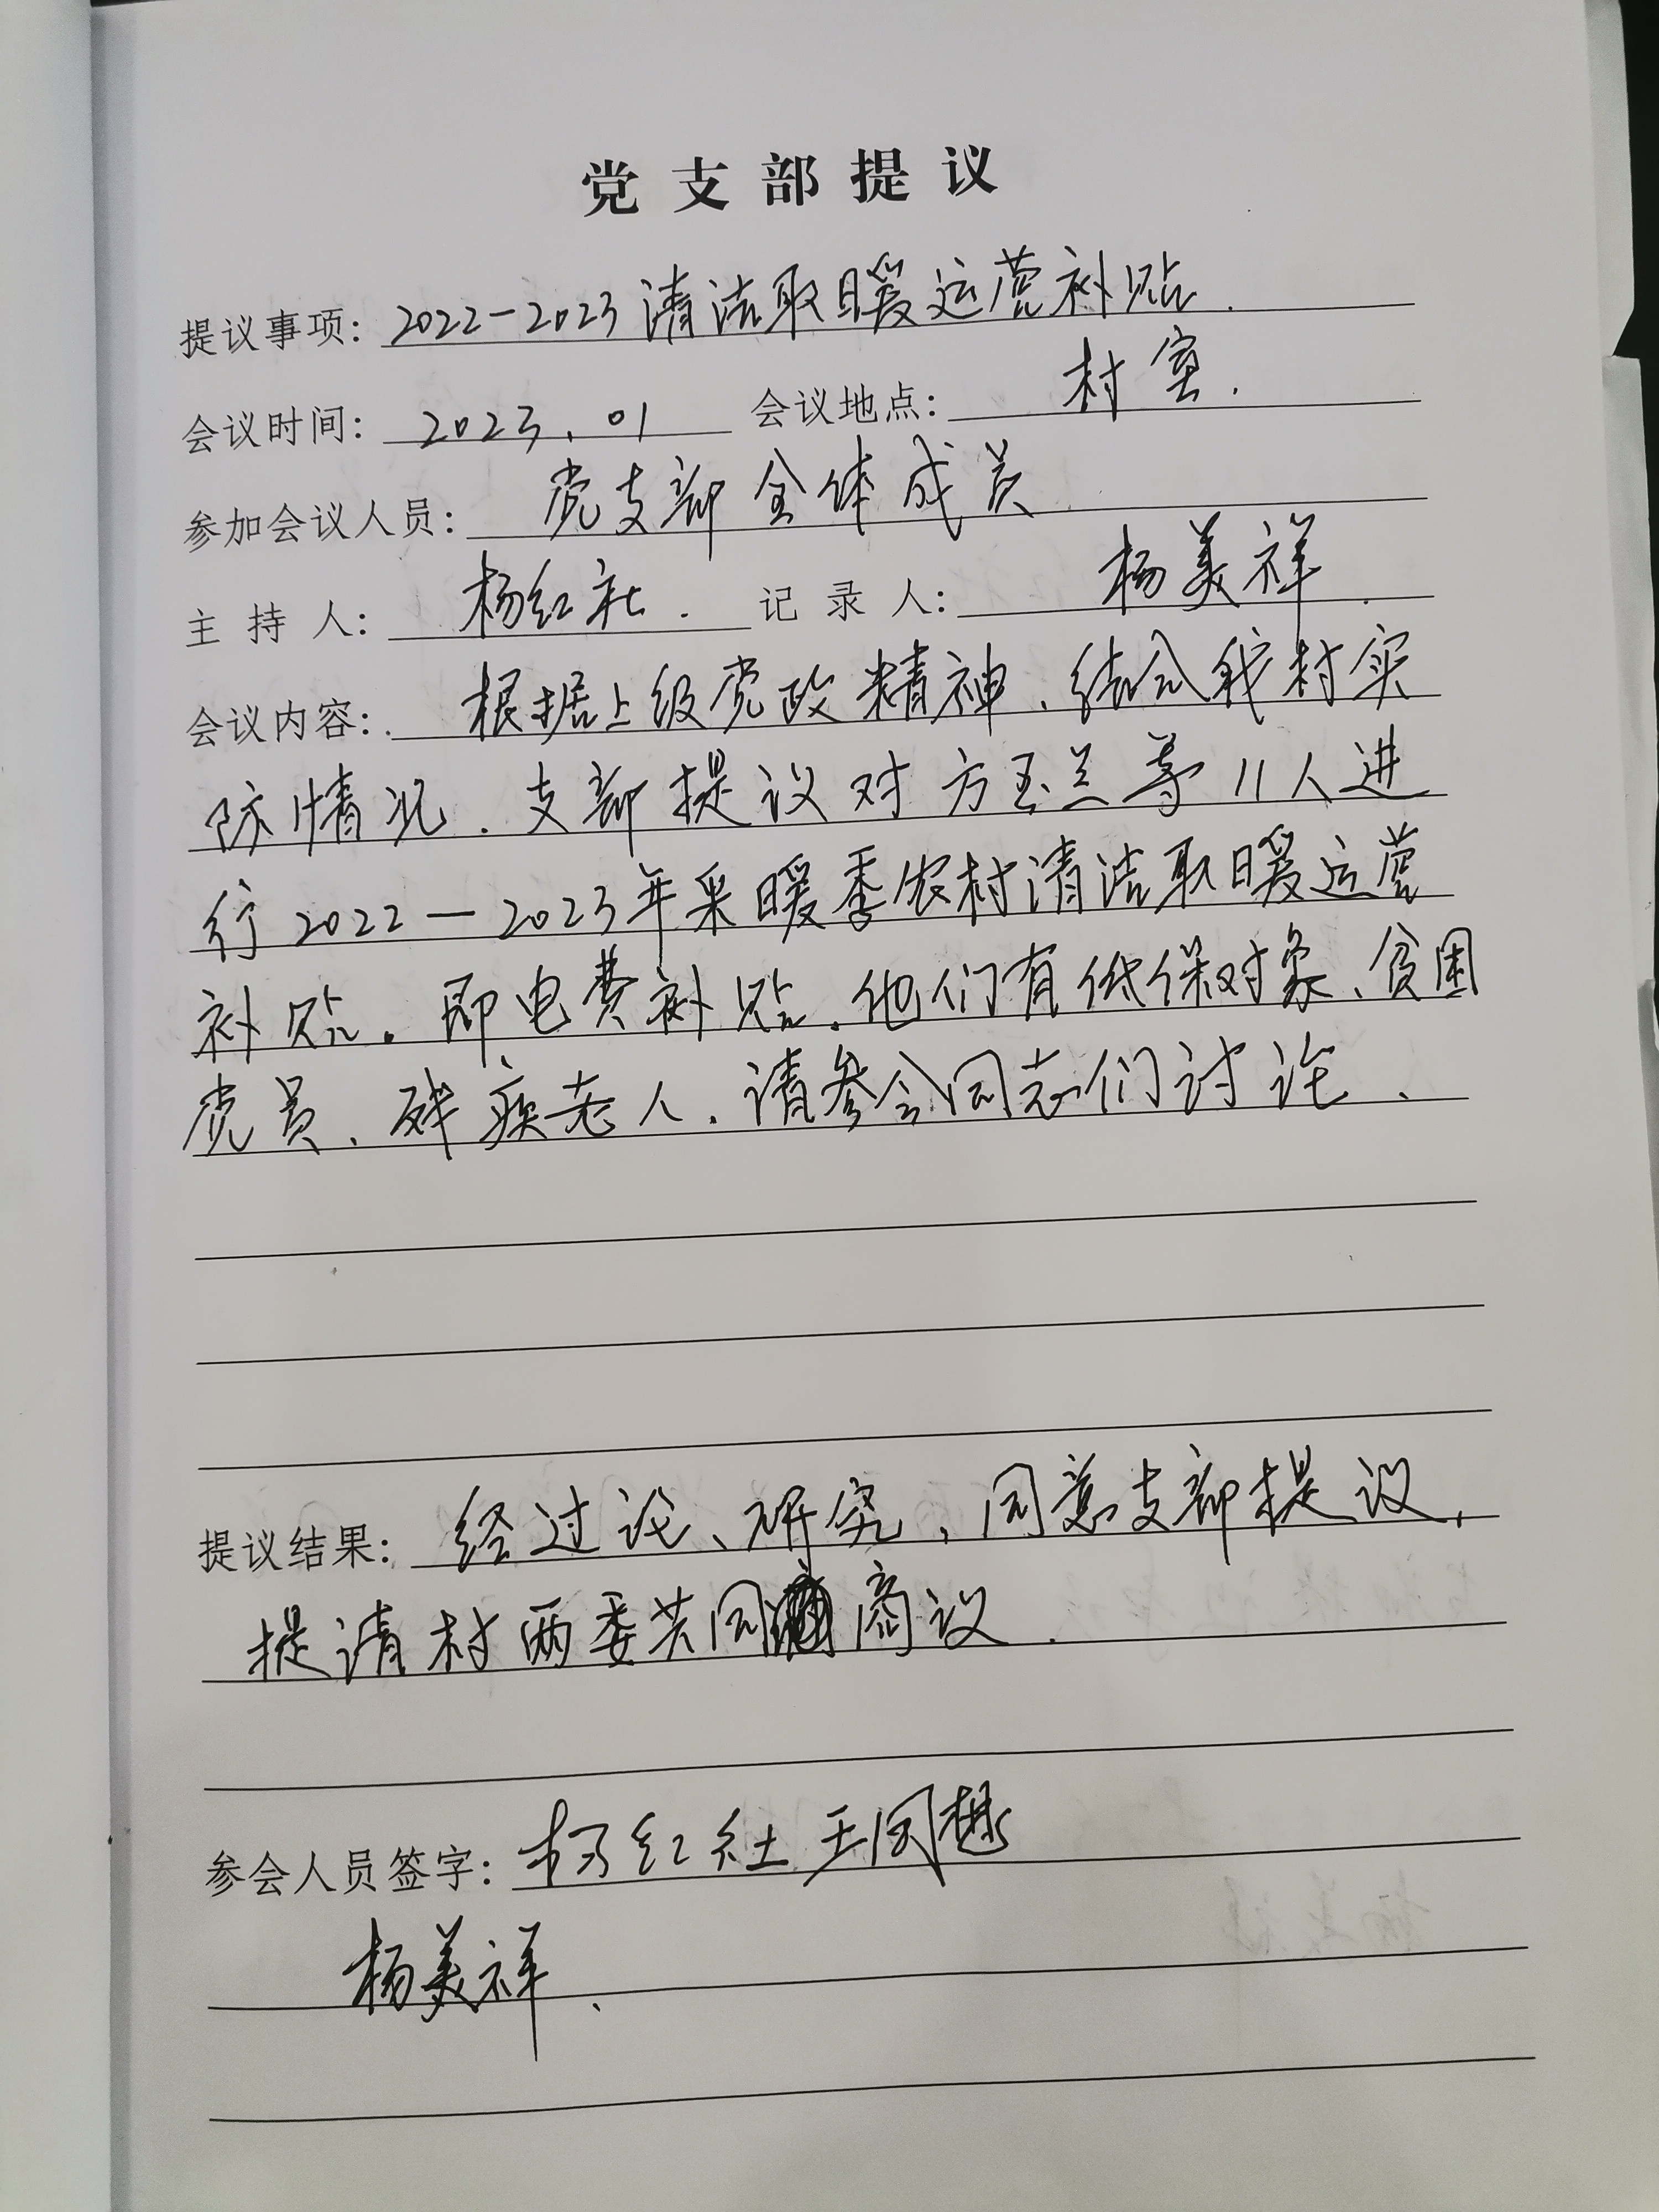 党支部提议
提议事项: 2022-2023清洁取暖运营补贴.
会议时间: 2023.01 会议地点: 村室.
参加会议人员: 党支部全体成员.
主持人: 杨红社. 记录人: 杨美祥.
会议内容: 根据上级党政精神、结合我村实
际情况.支部提议对方玉兰等11人进
行2022—2023年采暖季农村清洁取暖运营
补贴。即电费补贴.他们有低保对象、贫困
党员、残疾老人.请参会同志们讨论、
提议结果: 经过论、研究,同意支部提议,
提请村两委共同商议.
参会人员签字: 杨红社 王凤
杨美祥、